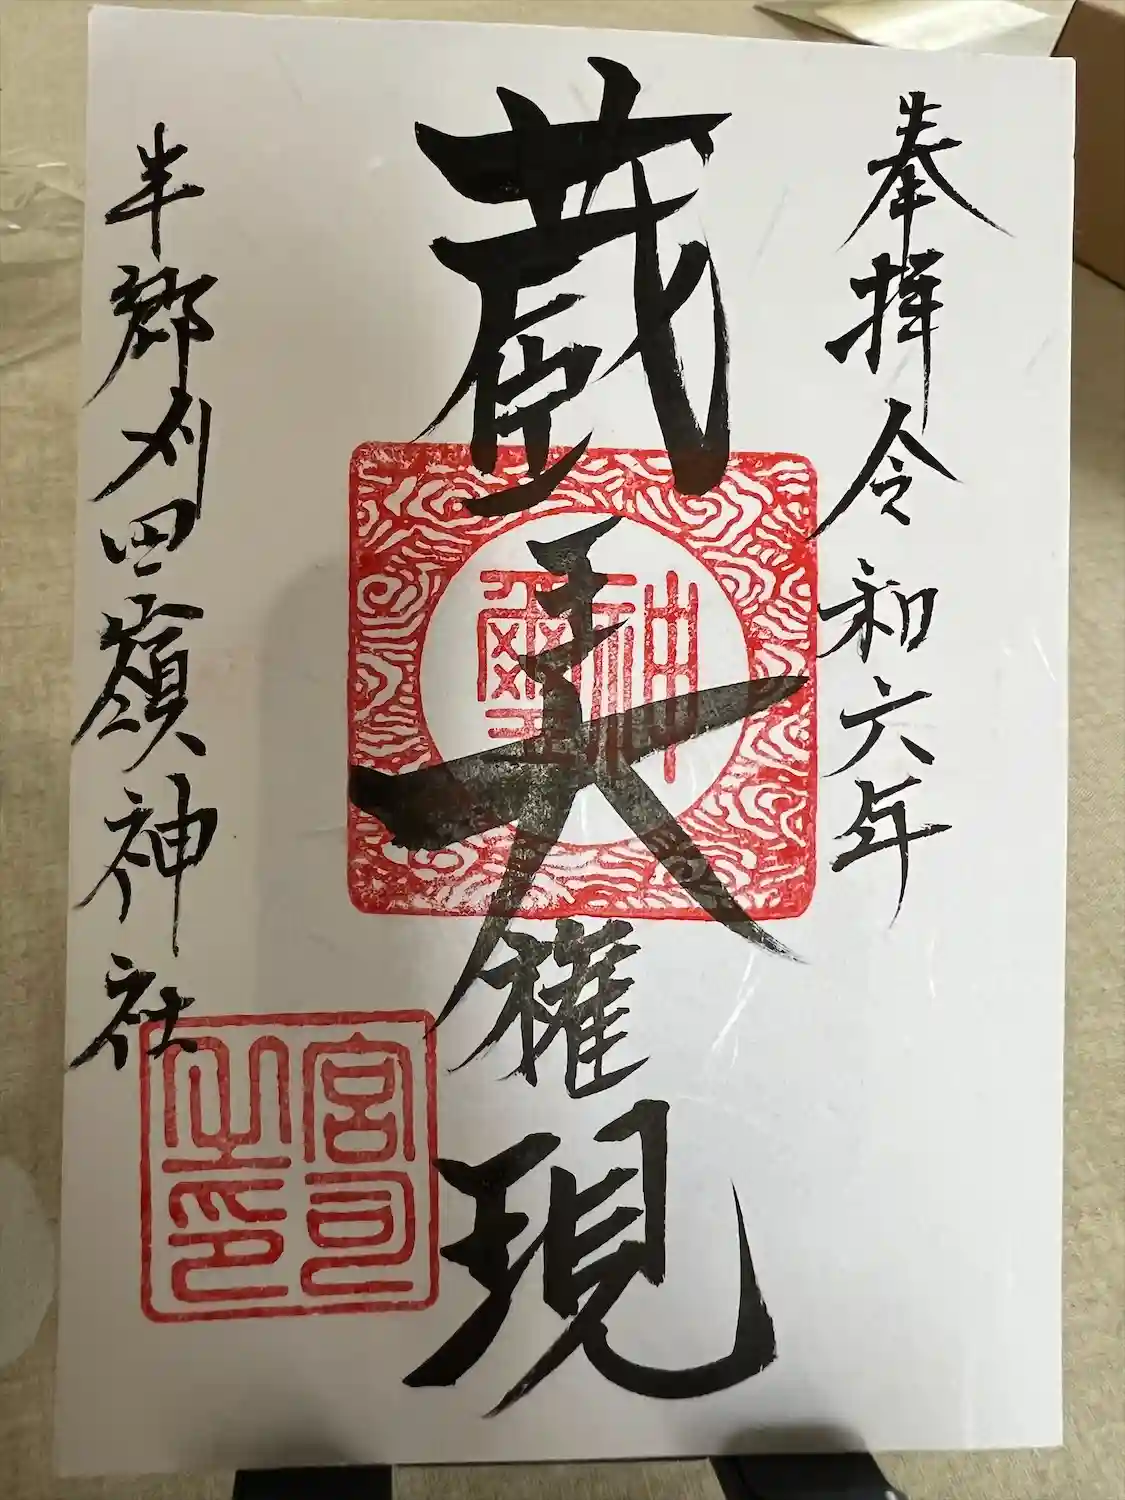 奉拝令和六年
蔵王大権現
神璽
半郷刈田嶺神社
宮司之印